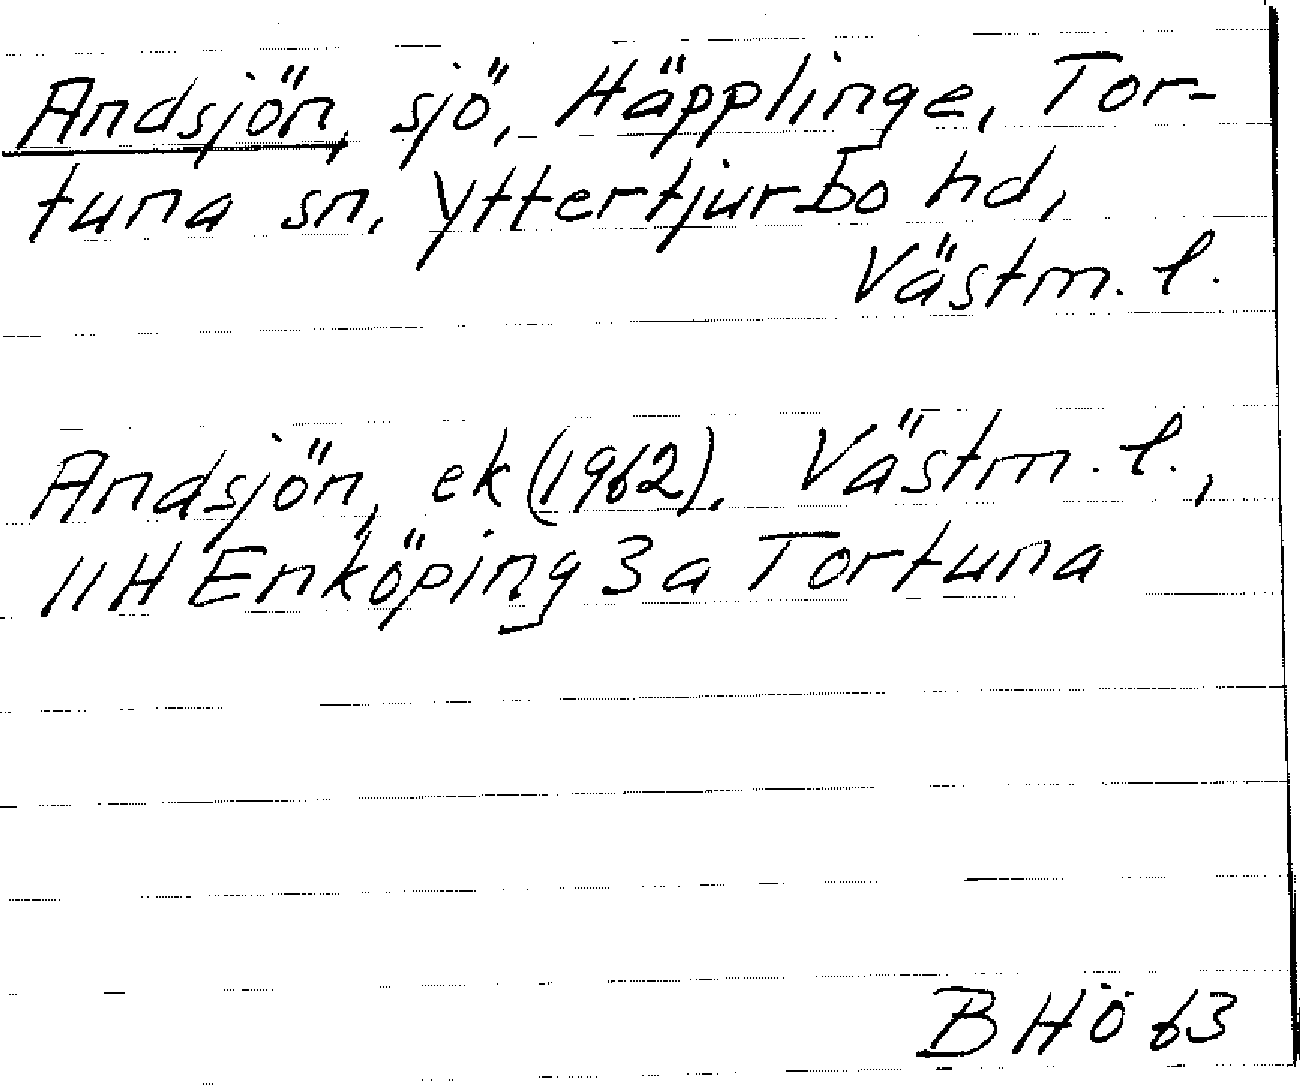 Andsjön, sjö, Häpplinge, Tor-
tuna sn, Yttertjurbo hd,
Västm. l.
Andsjön, ek (1962), Västm. l.,
11H Enköping 3a Tortuna
B HÖ 63